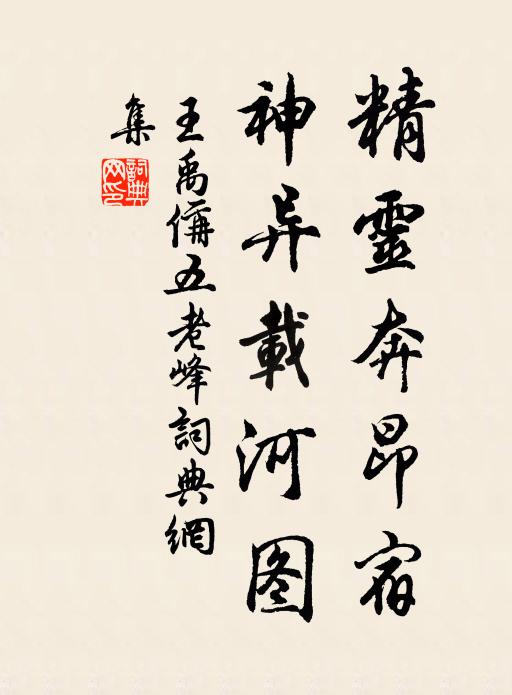 精靈奔昂宿
神异載河图
王禹偁五老峰詞典網
集
詞典网印